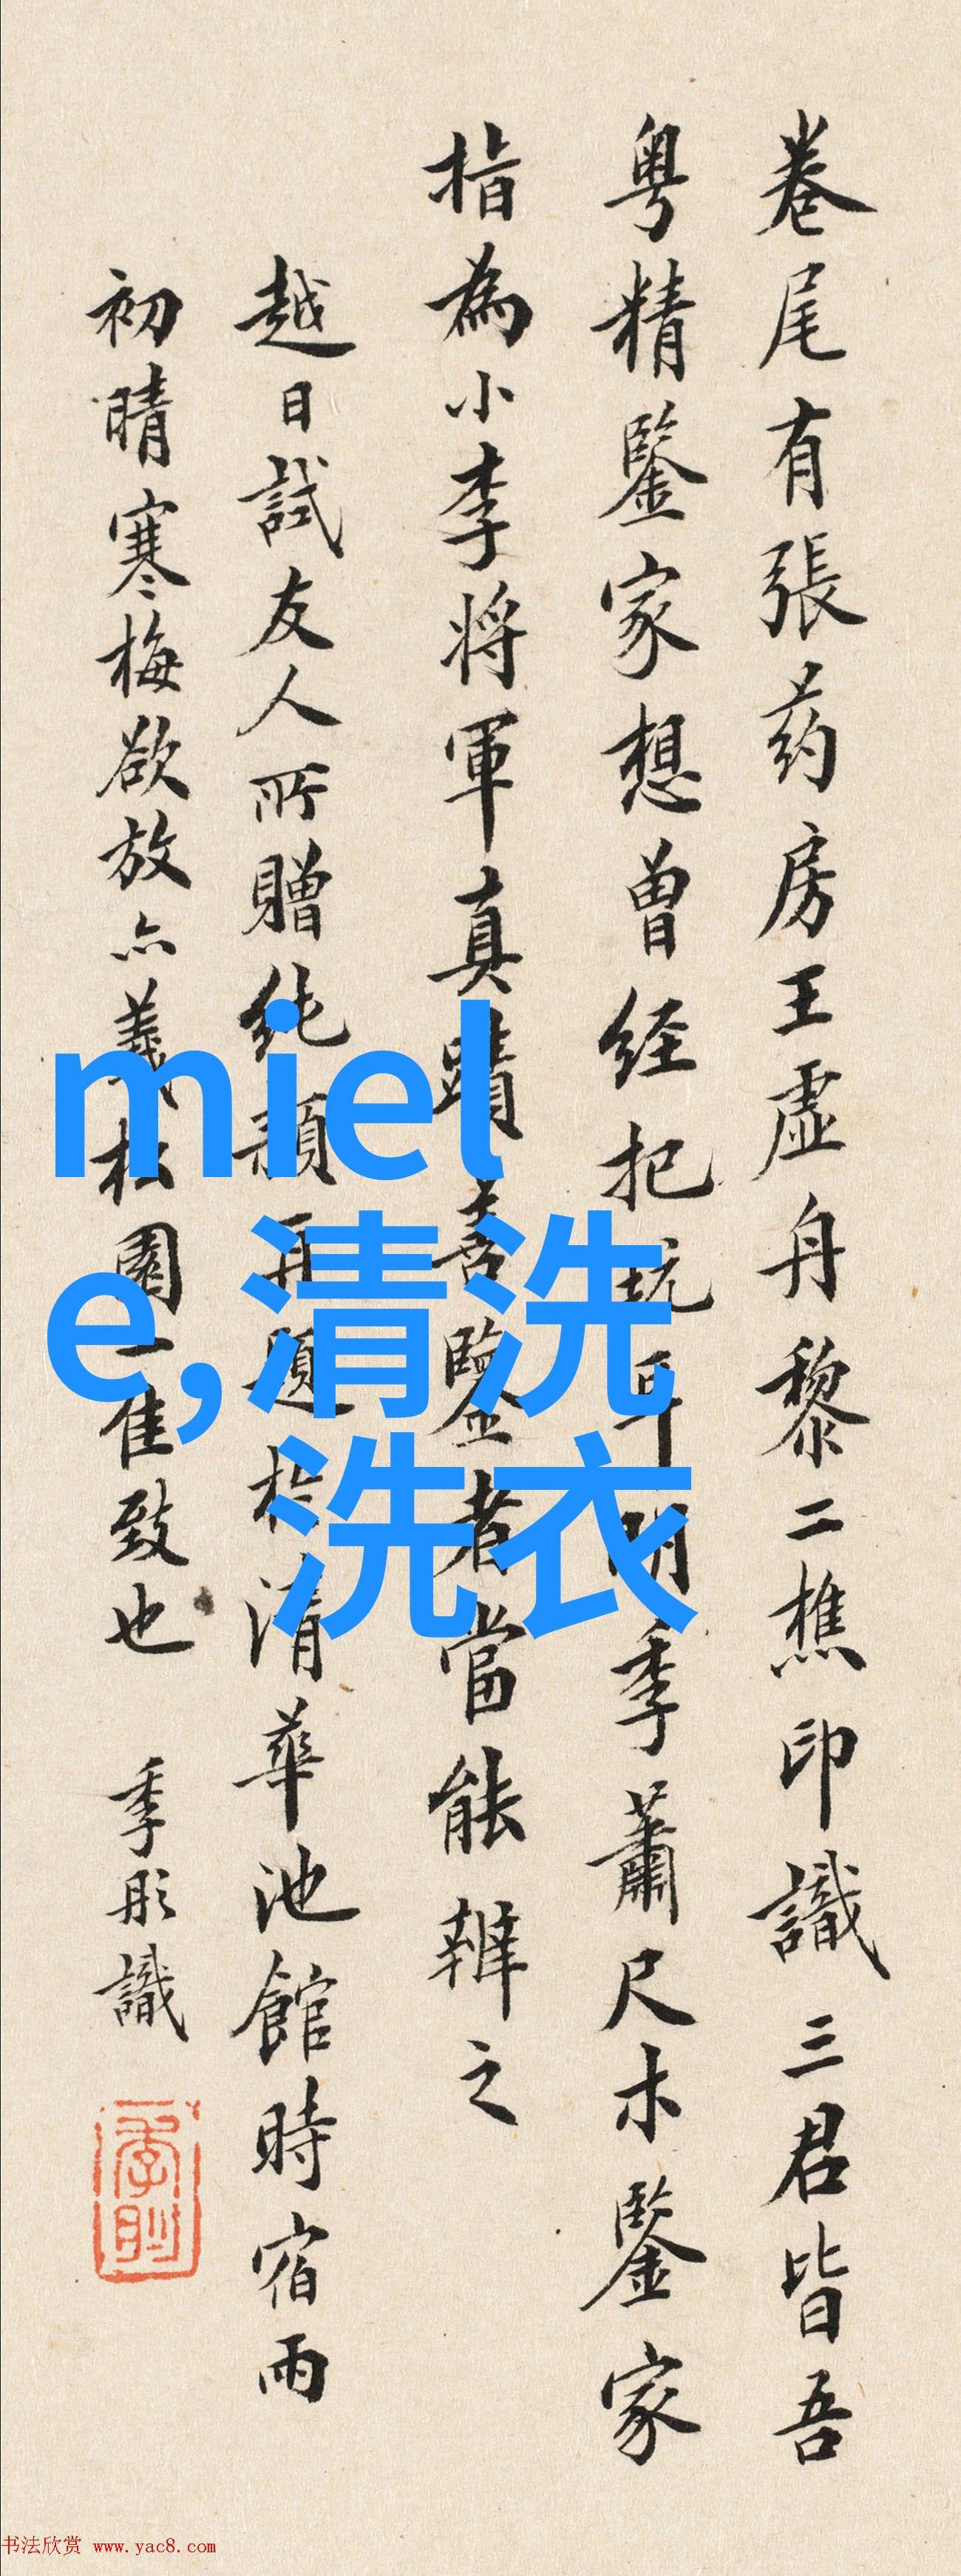 卷尾有張药房王虛舟黎二樵印識三君皆吾
粵精鑒家想曾经把玩耳明季蕭尺木鑒家
指為小李将軍真蹟善鑒者當能辨之
越日試友人所贈純穎再題於清華池館時宿雨
初晴寒梅欲放亦義松園一佳致也 季彤識
miel
e,清洗
洗衣
书法欣赏 www.yac8.com